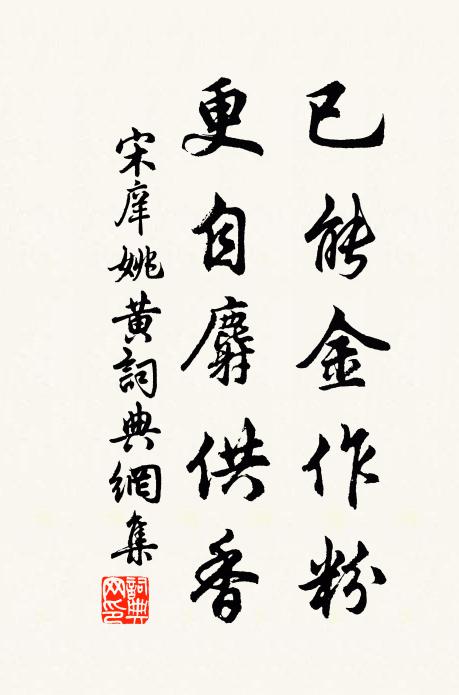 已能金作粉
更自麝供香
宋庠姚黄詞典網集
詞典网印